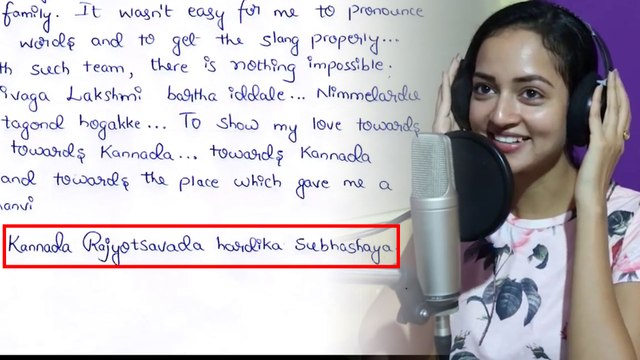 family. It wasn't easy for me to pronounce
words and to get the slang properly...
th such team, there is nothing impossible.
ivaga Lakshmi bartha iddale... Nimmelardu
tagond hogakke... To show my love towards
towards Kannada... towards Kannada
and towards the place which gave me a
anvi
Kannada Rajyotsavada hardika Subhashaya